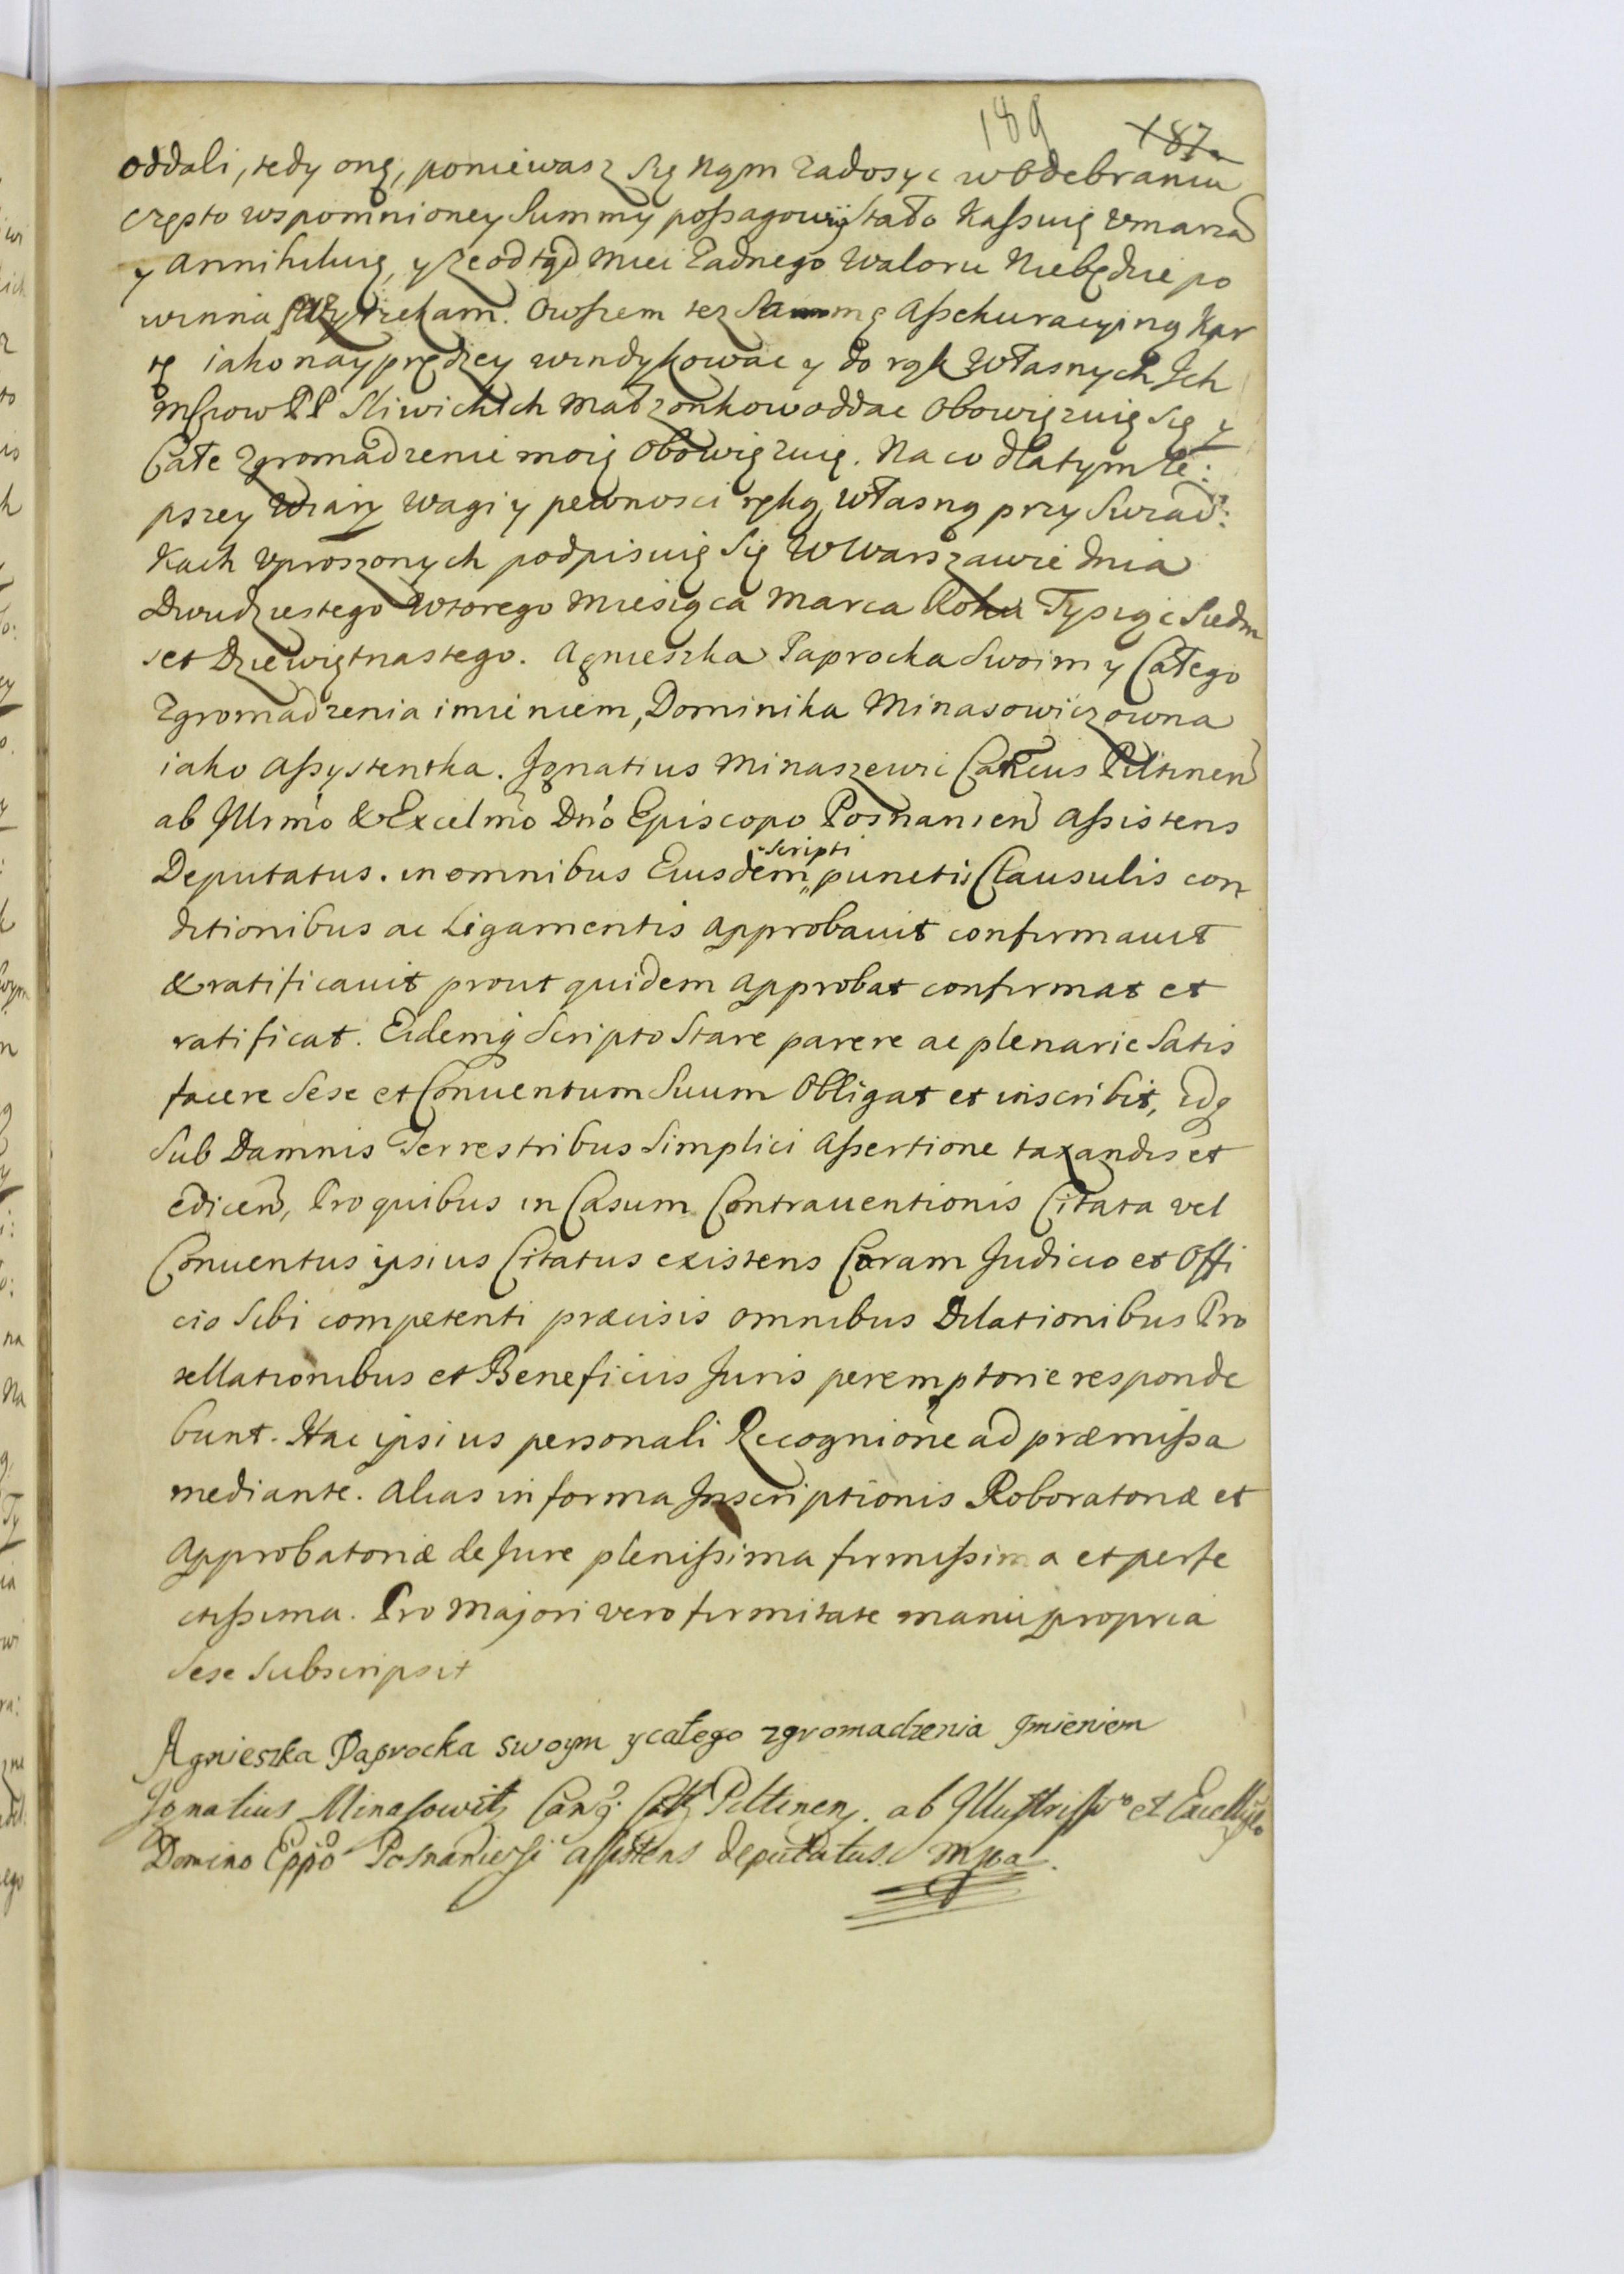 189 187
oddali, tedy onę, poniewasz się nąm zadosyc w odebraniu
często wspomnioney Summy possagowij Stało Kassuię umarza
y Annihiluię, y ze odtąd miei zadnego Waloru Niebędzie po
winna przyrzekam. Owszem tez Sammę Assekuracyiną Kar
tę iako nayprędzey windykowac y do rąk Własnych Ich
Msciow PP Sliwickich Małzonkow oddac Obowięzuię się y
Całe Zgromadzenie moię Obowięzuię. Na co dla tym le:
pszey Wiary Wagi y pewnosci ręką własną przy Swiad:
kach uproszonych podpisuię Się W Warszawie dnia
Dwudziestego Wtorego Miesiąca Marca Roku Tysiąc Siedm
set Dziewiętnastego. Agnieszka Paprocka Swoim y Całego
Zgromadzenia imieniem, Dominika Minasowiczowna
iako Assystentka. Ignatius Minaszewic Piltinen
ab Illrmo & Excelmo Dno Episcopo Posnanien Assistens
Deputatus. in omnibus Eiusdem scripti punctis Clausulis con
ditionibus ac Ligamentis approbavit confirmavit
& ratificavit prout quidem approbat confirmat et
ratificat. Eidemq Scripto Stare parere ac plenarie Satis
facere Sese et Conventum Suum Obligat et inscribit, idq
Sub Damnis Terrestribus Simplici Assertione taxandis et
edicen, Pro quibus in Casum Contraventionis Citata vel
Conventus ipsius Citatus existens Coram Judicio et Offi
cio Sibi competenti præcisis omnibus Dilationibus Pro
tellationibus et Beneficiis Juris peremptorie responde
bunt. Hac ipsius personali Recognione ad præmissa
mediante. Alias in forma Inscriptionis Roboratoriæ et
Approbatoriæ de Jure plenissima firmissima et perfe
ctissima. Pro Majori vero firmitate manu propria
Sese Subscripsit
Agnieszka Paprocka swoym y całego zgromadzenia Imieniem
Ignatius Minasowitz Piltinen. ab Illustrissimo et
Domino Eppo Posnaniensi assistens deputatus mpa.